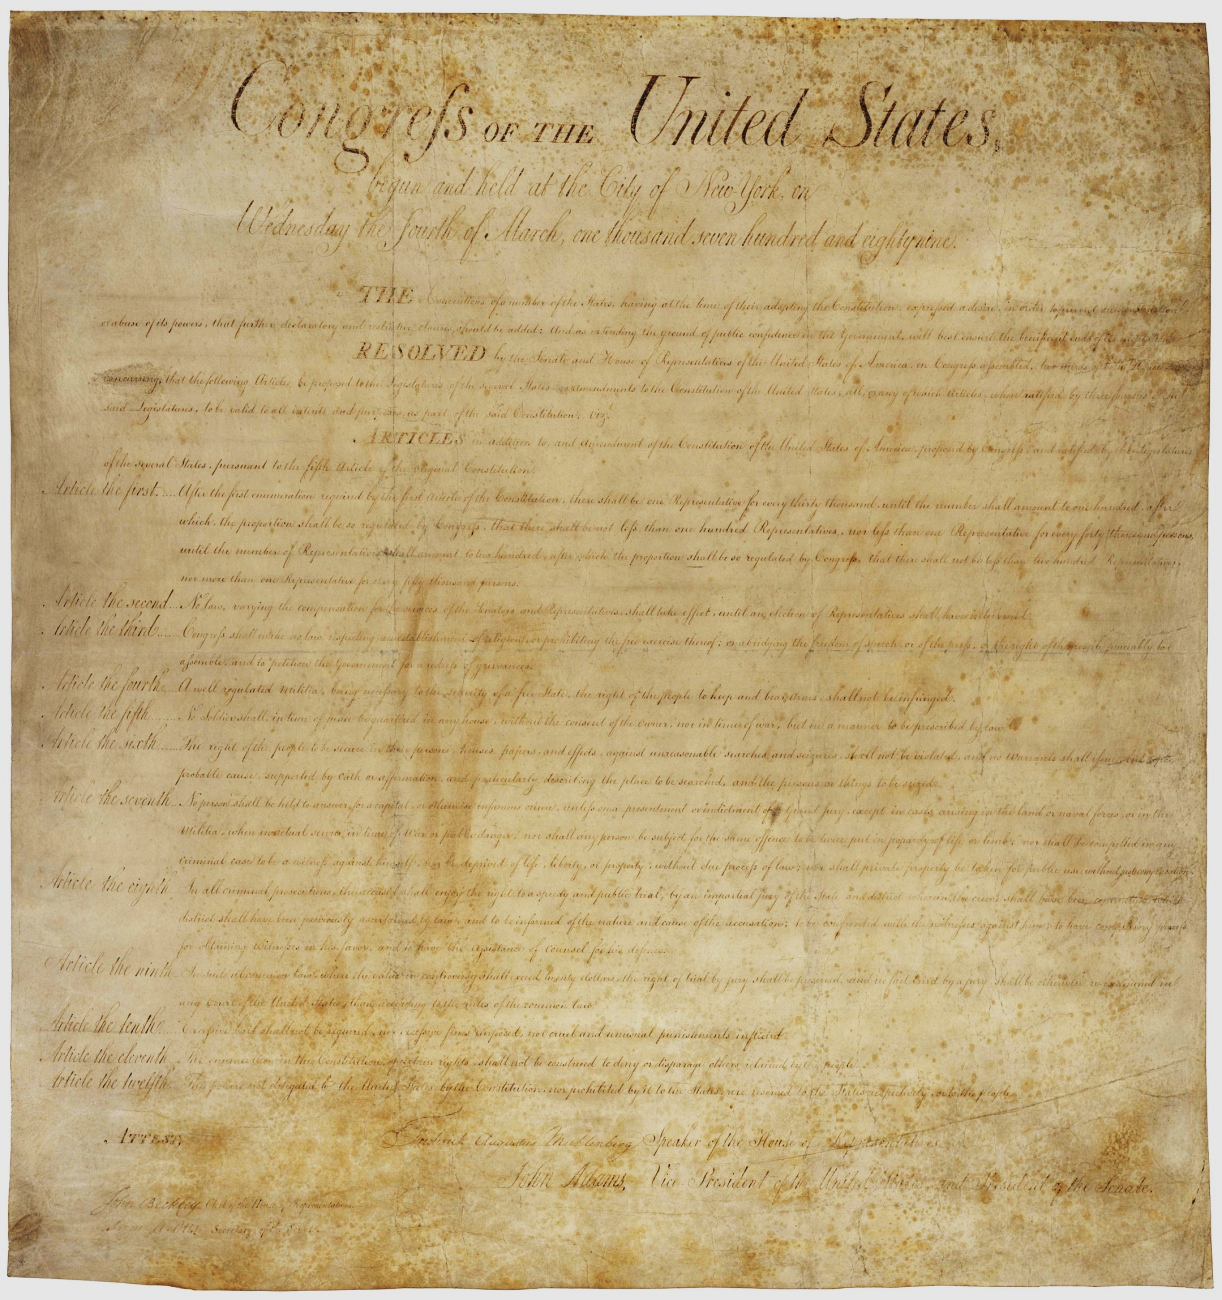 Congress OF THE United States,
begun and held at the City of New York, on
Wednesday the fourth of March, one thousand seven hundred and eighty nine.
THE Conventions of a number of the States, having at the time of their adopting the Constitution, expressed a desire, in order to prevent misconstruction
or abuse of its powers, that further declaratory and restrictive clauses should be added: And as extending the ground of public confidence in the Government, will best ensure the beneficent ends of its institution
RESOLVED by the Senate and House of Representatives of the United States of America, in Congress assembled, two thirds of both Houses
concurring, that the following Articles be proposed to the Legislatures of the several States, as amendments to the Constitution of the United States, all, or any of which Articles, when ratified by three fourths of the
said Legislatures, to be valid to all intents and purposes, as part of the said Constitution; viz.
ARTICLES in addition to, and Amendment of the Constitution of the United States of America, proposed by Congress, and ratified by the Legislatures
of the several States, pursuant to the fifth Article of the original Constitution.
Article the first. ... After the first enumeration required by the first Article of the Constitution, there shall be one Representative for every thirty thousand, until the number shall amount to one hundred, after
which, the proportion shall be so regulated by Congress, that there shall be not less than one hundred Representatives, nor less than one Representative for every forty thousand persons,
until the number of Representatives shall amount to two hundred, after which the proportion shall be so regulated by Congress, that there shall not be less than two hundred Representatives,
nor more than one Representative for every fifty thousand persons.
Article the second ... No law, varying the compensation for the services of the Senators and Representatives, shall take effect, until an election of Representatives shall have intervened.
Article the third ... Congress shall make no law respecting an establishment of religion, or prohibiting the free exercise thereof; or abridging the freedom of speech, or of the press; or the right of the people peaceably to
assemble, and to petition the Government for a redress of grievances.
Article the fourth. A well regulated Militia, being necessary to the security of a free State, the right of the people to keep and bear Arms, shall not be infringed.
Article the fifth ... No Soldier shall, in time of peace be quartered in any house, without the consent of the owner, nor in time of war, but in a manner to be prescribed by law.
Article the sixth ... The right of the people to be secure in their persons, houses, papers, and effects, against unreasonable searches and seizures, shall not be violated, and no Warrants shall issue, but upon
probable cause, supported by Oath or affirmation, and particularly describing the place to be searched, and the persons or things to be seized.
Article the seventh. No person shall be held to answer for a capital, or otherwise infamous crime, unless on a presentment or indictment of a Grand Jury, except in cases arising in the land or naval forces, or in the
Militia, when in actual service in time of War or public danger; nor shall any person be subject for the same offence to be twice put in jeopardy of life or limb; nor shall be compelled in any
criminal case to be a witness against himself, nor be deprived of life, liberty, or property, without due process of law; nor shall private property be taken for public use, without just compensation.
Article the eighth. In all criminal prosecutions, the accused shall enjoy the right to a speedy and public trial, by an impartial jury of the State and district wherein the crime shall have been committed, which
district shall have been previously ascertained by law, and to be informed of the nature and cause of the accusation; to be confronted with the witnesses against him; to have compulsory process
for obtaining witnesses in his favor, and to have the assistance of counsel for his defence.
Article the ninth. In suits at common law, where the value in controversy shall exceed twenty dollars, the right of trial by jury shall be preserved, and no fact tried by a jury shall be otherwise re-examined in
any Court of the United States, than according to the rules of the common law.
Article the tenth. Excessive bail shall not be required, nor excessive fines imposed, nor cruel and unusual punishments inflicted.
Article the eleventh. The enumeration in the Constitution, of certain rights, shall not be construed to deny or disparage others retained by the people.
Article the twelfth. The powers not delegated to the United States by the Constitution, nor prohibited by it to the States, are reserved to the States respectively, or to the people.
ATTEST,
Frederick Augustus Muhlenberg Speaker of the House of Representatives.
John Adams, Vice-President of the United States, and President of the Senate.
John Beckley, Clerk of the House of Representatives.
Sam. A. Otis Secretary of the Senate.